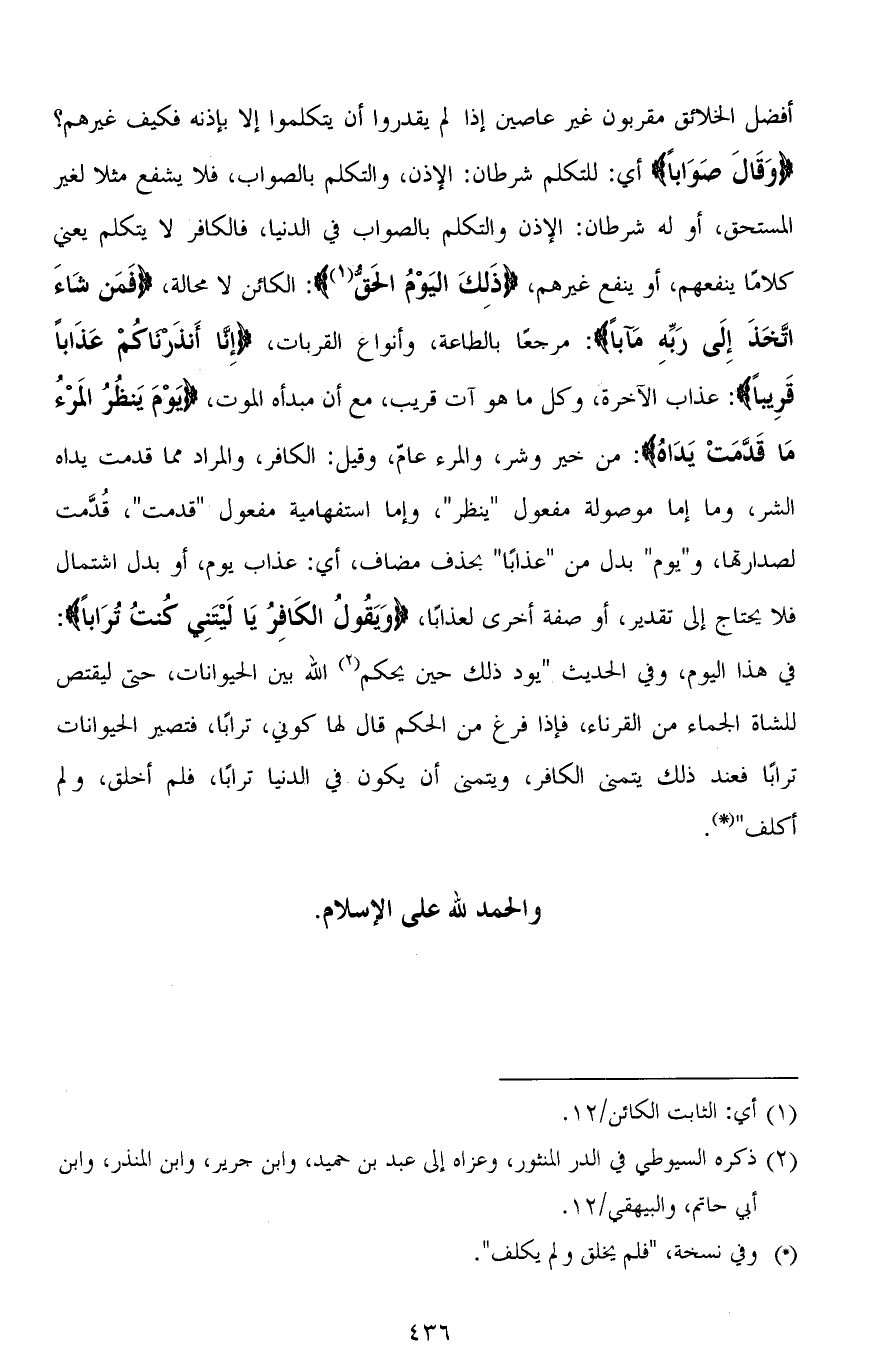 أفضل الخلائق مقربون غير عاصين إذا لم يقدروا أن يتكلموا إلا بإذنه فكيف غيرهم؟
﴿وَقَالَ صَوَاباً﴾ أي: للتكلم شرطان: الإذن، والتكلم بالصواب، فلا يشفع مثلا لغير
المستحق، أو له شرطان: الإذن والتكلم بالصواب في الدنيا، فالكافر لا يتكلم يعني
كلامًا ينفعهم، أو ينفع غيرهم، ﴿ذَلِكَ اليَوْمُ الحَقُّ(١)﴾: الكائن لا محالة، ﴿فَمَن شَاءَ
اتَّخَذَ إِلَى رَبِّهِ مَآباً﴾: مرجعًا بالطاعة، وأنواع القربات، ﴿إِنَّا أَنذَرْنَاكُمْ عَذَاباً
قَرِيباً﴾: عذاب الآخرة، وكل ما هو آت قريب، مع أن مبدأه الموت، ﴿يَوْمَ يَنظُرُ المَرْءُ
مَا قَدَّمَتْ يَدَاهُ﴾: من خير وشر، والمرء عامّ، وقيل: الكافر، والمراد مما قدمت يداه
الشر، وما إما موصولة مفعول "ينظر"، وإما استفهامية مفعول "قدمت"، قُدَّمت
لصدارتها، و"يوم" بدل من "عذابًا" بحذف مضاف، أي: عذاب يوم، أو بدل اشتمال
فلا يحتاج إلى تقدير، أو صفة أخرى لعذابًا، ﴿وَيَقُولُ الكَافِرُ يَا لَيْتَنِي كُنتُ تُرَاباً﴾:
في هذا اليوم، وفي الحديث "يود ذلك حين يحكم(٢) الله بين الحيوانات، حتى ليقتص
للشاة الجماء من القرناء، فإذا فرغ من الحكم قال لها كوني، ترابًا، فتصير الحيوانات
ترابًا فعند ذلك يتمنى الكافر، ويتمنى أن يكون في الدنيا ترابًا، فلم أخلق، ولم
أكلف"(*).
والحمد لله على الإسلام.
(١) أي: الثابت الكائن/١٢.
(٢) ذكره السيوطي في الدر المنثور، وعزاه إلى عبد بن حميد، وابن جرير، وابن المنذر، وابن
أبي حاتم، والبيهقي/١٢.
(*) وفي نسخة، "فلم يخلق ولم يكلف".
٤٣٦